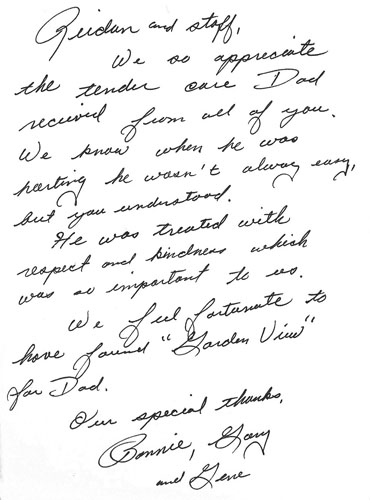 Reidun and staff,
We so appreciate
the tender care Dad
recieved from all of you.
We know when he was
hurting he wasn't alway easy,
but you understood.
He was treated with
respect and kindness which
was so important to us.
We feel fortunate to
have found "Garden View"
for Dad.
Our special thanks,
Bonnie, Gary
and Gene